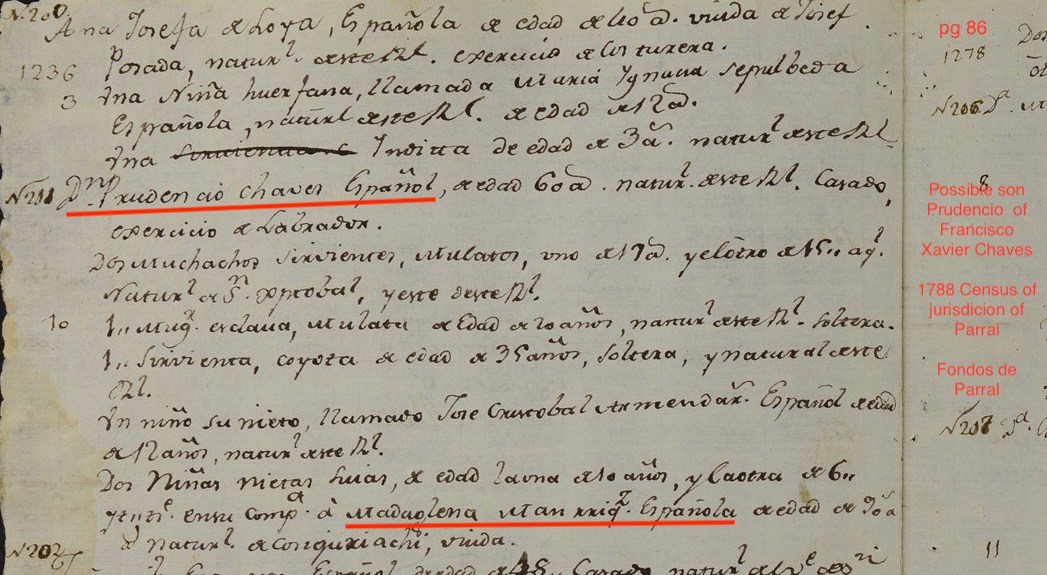 N. 200.
Ana Josefa de Loya, Española de edad de 40 a. viuda de Josef
Posada, natur.l deste Rl. exercicio de Costurera.
1236
3
Una Niña huerfana, llamada Maria Ygnacia Sepulbeda
Española, natur.l deste Rl. de edad de 12 a.
Una Indita de edad de 3 a. natur.l deste Rl
N 201 Dn Prudencio Chaves Español, de edad 60 a. natur. deste Rl. Casado,
exercicio de Labrador.
Dos Muchachos sirvientes, Mulatos, uno de 17 a. y el otro de 15.. aq.l
Natur.l de S.n Xptobal, y este deste Rl.
10
1,, Mug.r esclava, Mulata de Edad de 20 años, natur.l deste Rl. soltera.
1,, Sirvienta, coyota de edad de 35 años, soltera, y natural deste
Rl.
Un niño su nieto, llamado Jose Cristobal Armendar.s Español de edad
de 12 años, natur.l deste Rl.
Dos Niñas nietas suias, de edad la una de 10 años, y la otra de 6,,
en su comp.a à Madaglena Manrriq.z Española de edad de 70 a
natur.l de Cosiguriachi, viuda.
N 202
Español de edad de 48 Casado natur.l
pg 86
1278
N 206 D.a
8
Possible son
Prudencio of
Francisco
Xavier Chaves
1788 Census of
jurisdicion of
Parral
Fondos de
Parral
N 207 D.a
11